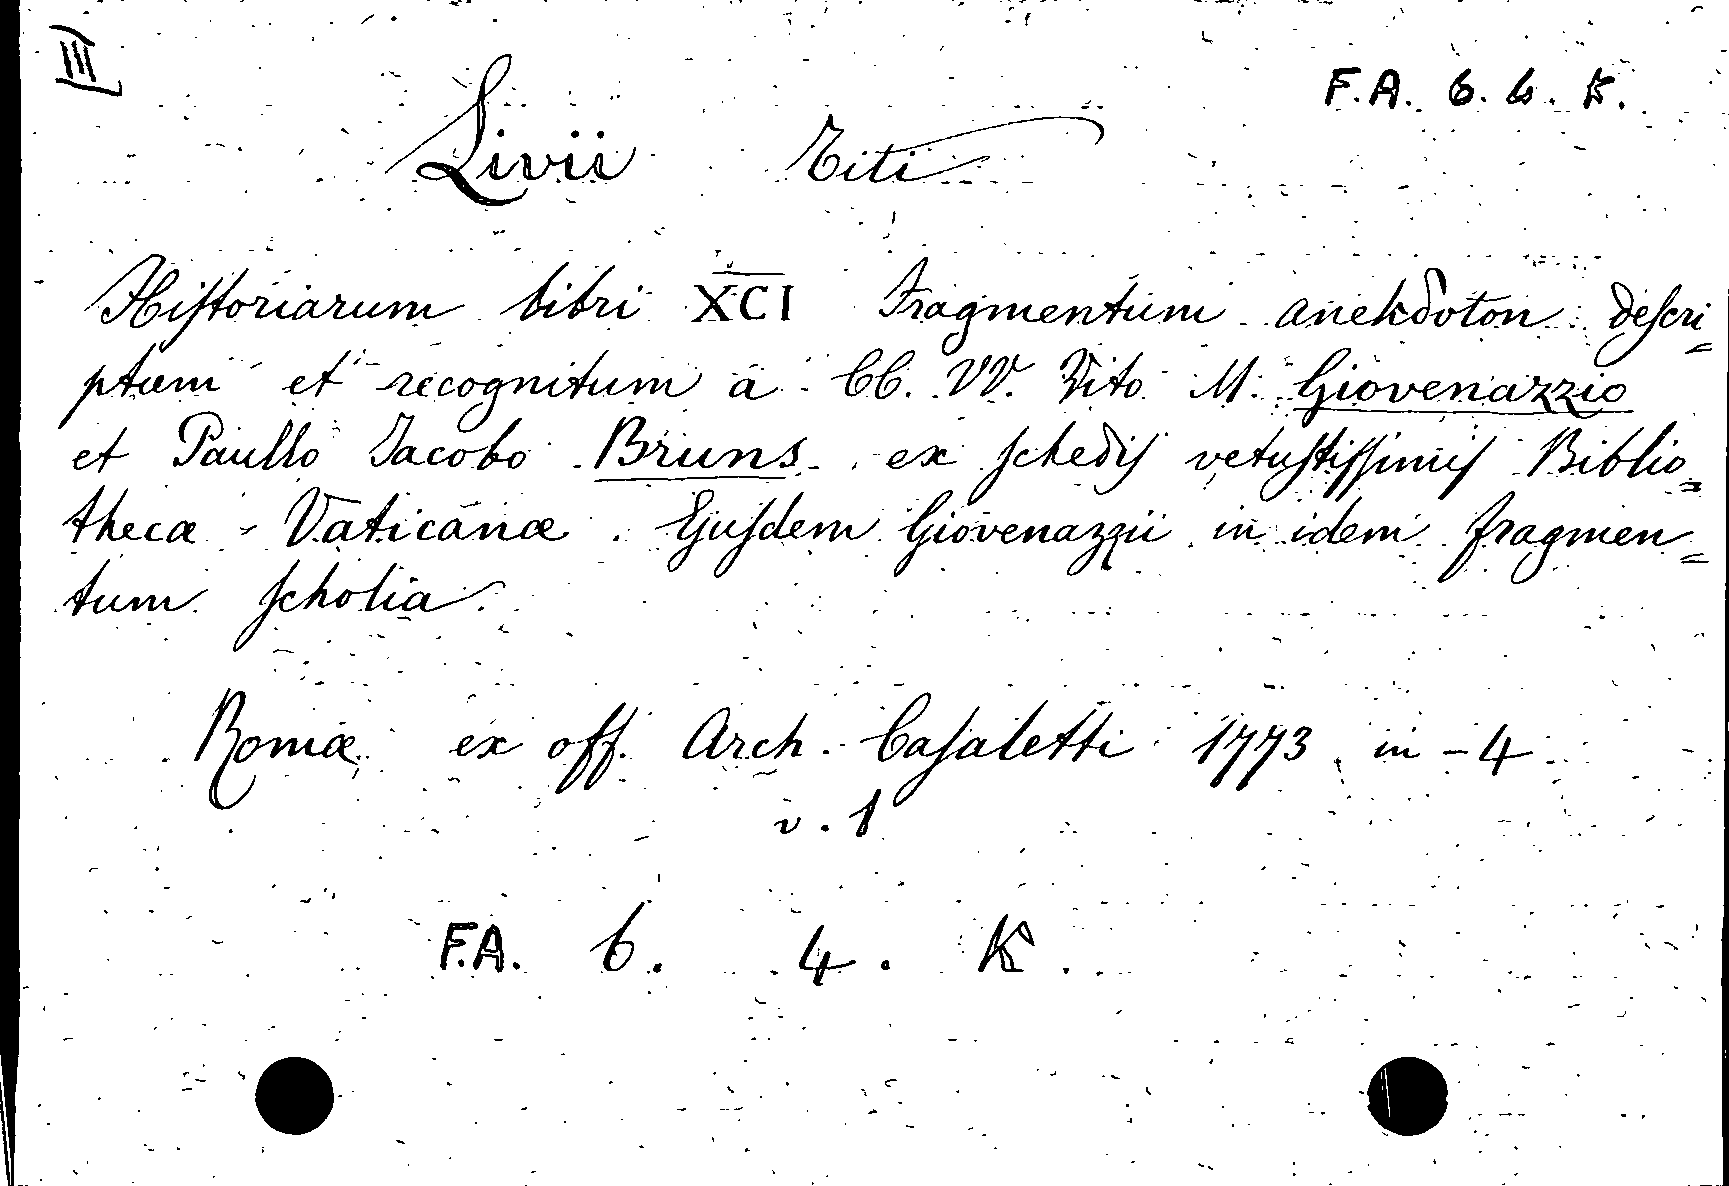 III
F.A. 6. 4. K.
Livii Titi
Hiſtoriarum libri XCI Fragmentum anekdoton deſcri=
ptum et recognitum a CC. VV. Vito M. Giovenazzio
et Paullo Jacobo Bruns ex ſchediſ vetuſtiſſimiſ Biblio=
thecæ Vaticanæ. Ejuſdem Giovenazzii in idem fragmen=
tum ſcholia.
Romæ ex off. Arch. Caſaletti 1773 in-4
v. 1
F.A. 6. 4. K.